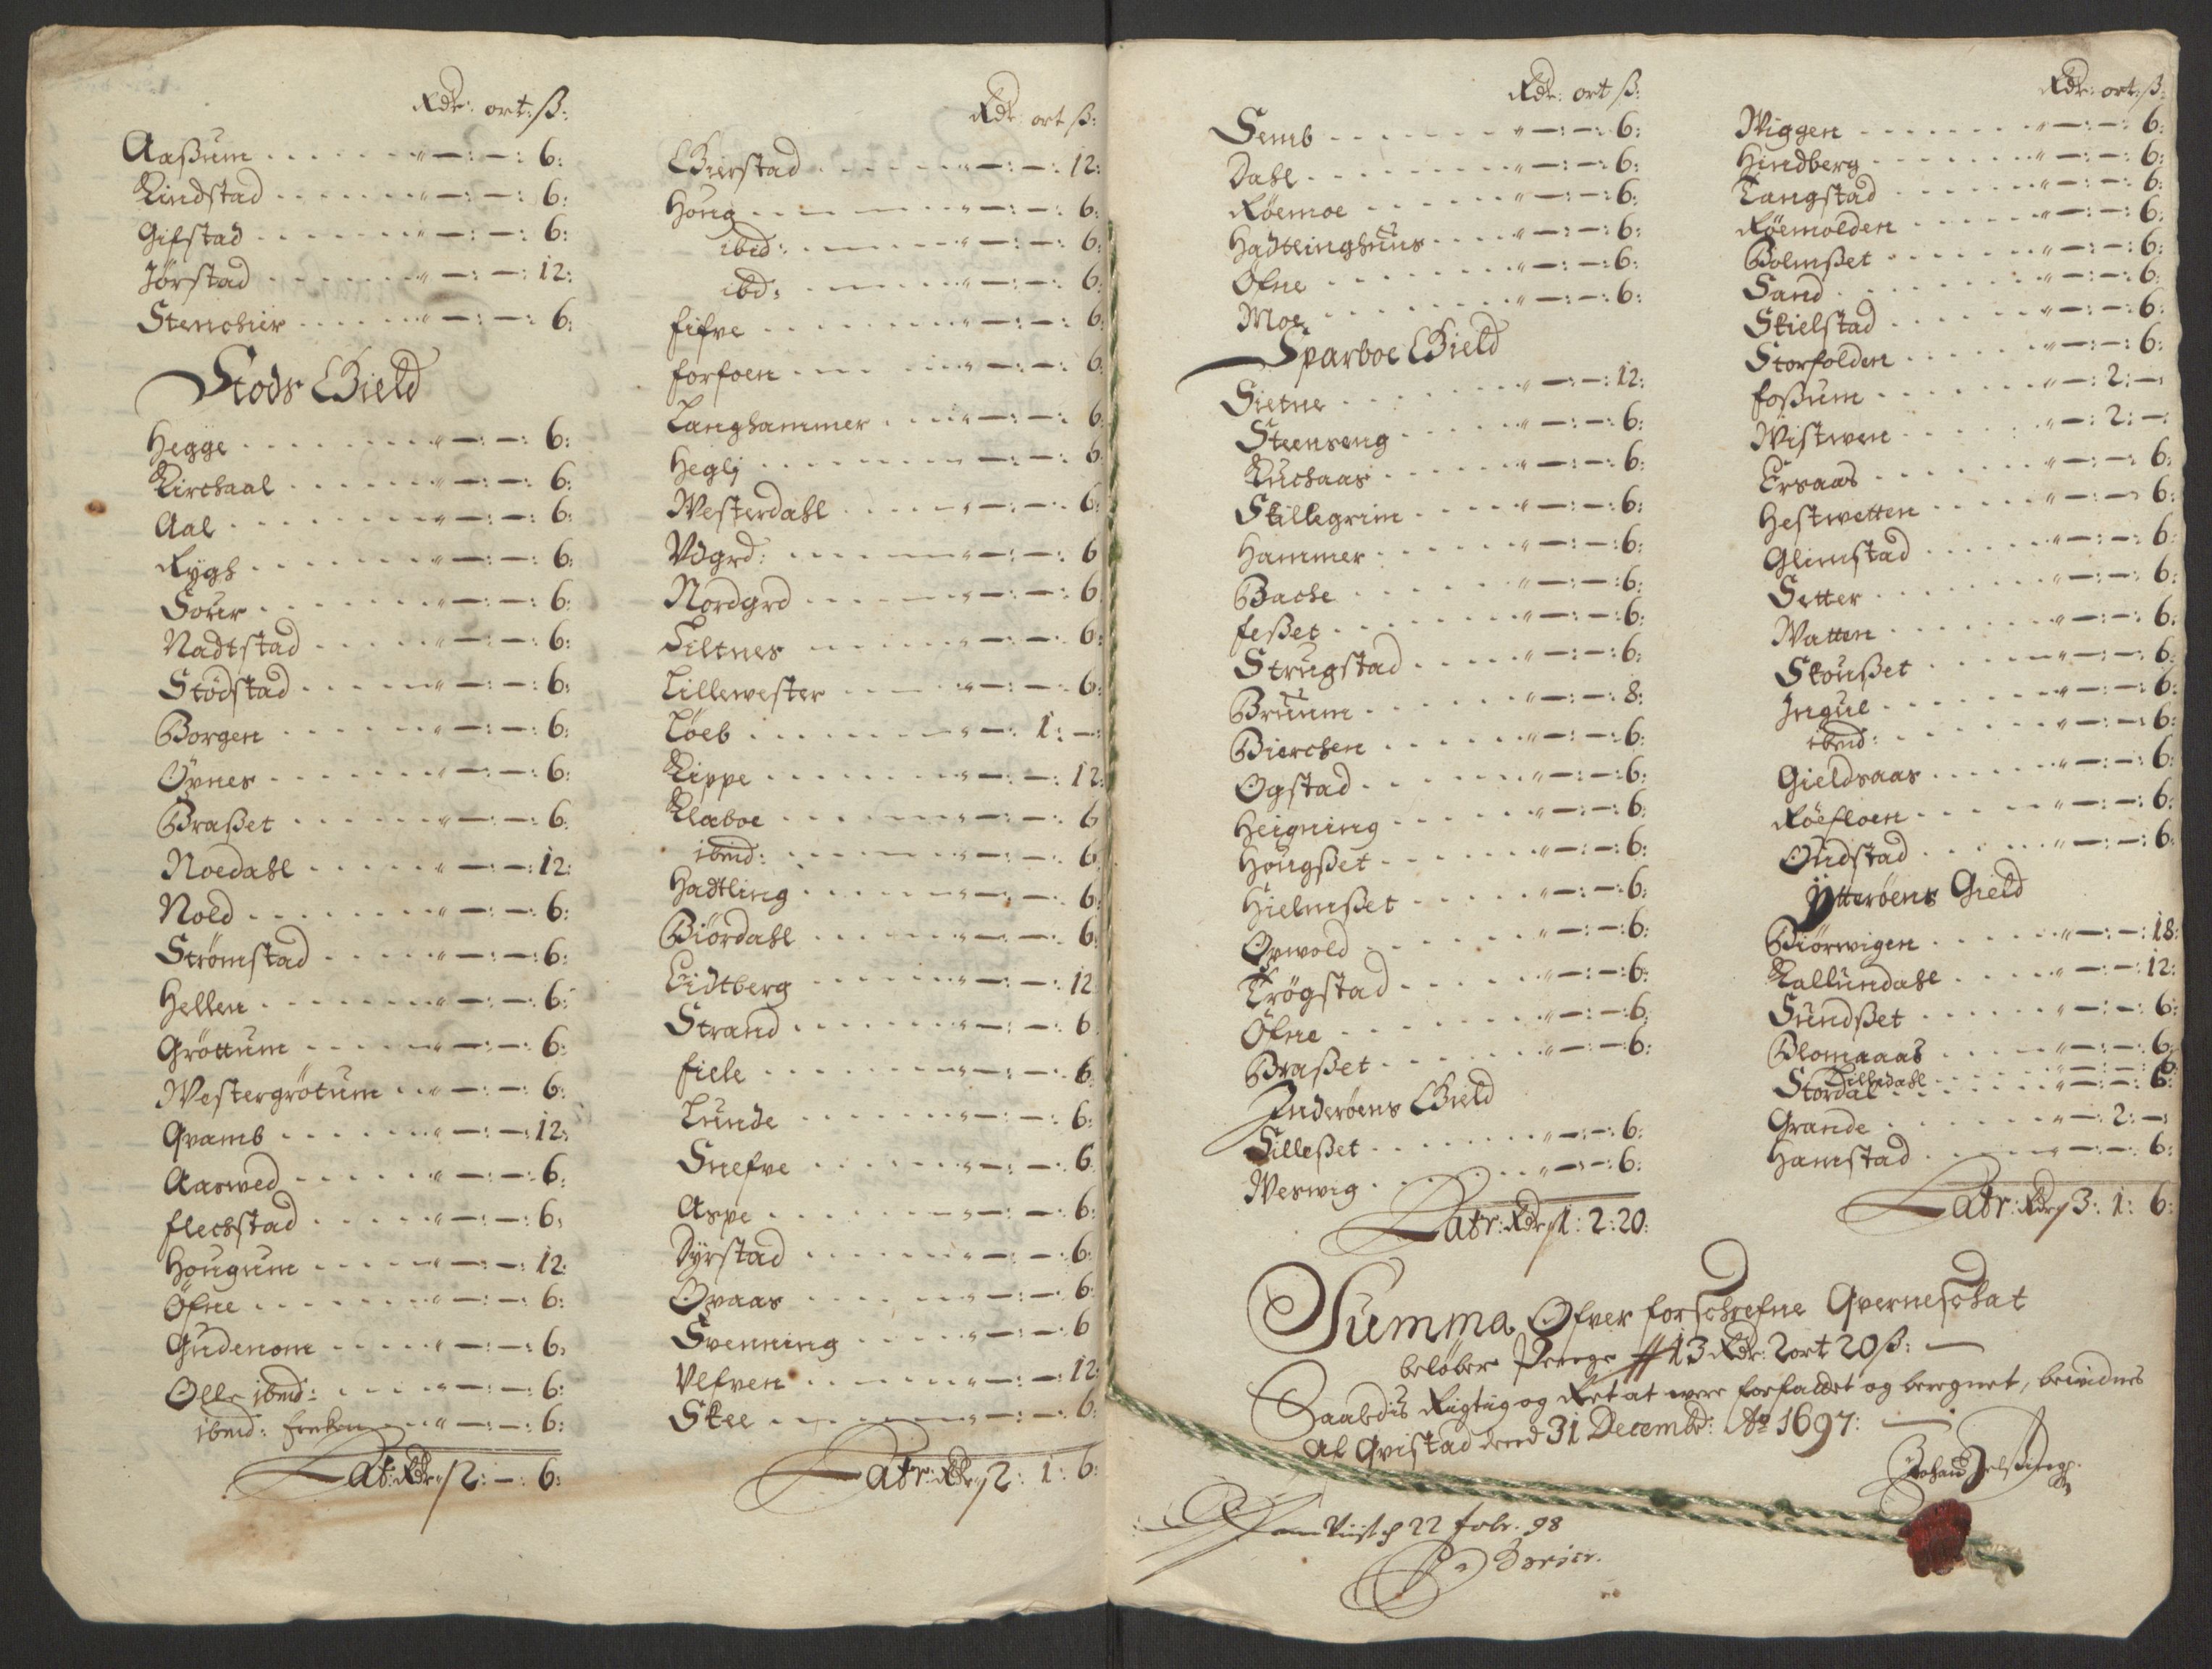 Rdr: ort: ß:
Aaßum . . . . . . . „ — : — : 6:
Kindstad . . . . . . „ — : — : 6:
Gifstad . . . . . . . „ — : — : 6:
Jørstad . . . . . . . „ — : — : 12:
Stenchier . . . . . . „ — : — : 6:
Stods Gield
Hegge . . . . . . . „ — : — : 6:
Kirchaal . . . . . . „ — : — : 6:
Aal . . . . . . . „ — : — : 6:
Rygh . . . . . . . „ — : — : 6:
Souer . . . . . . . „ — : — : 6:
Nadtstad . . . . . „ — : — : 6:
Stødstad . . . . . „ — : — : 6:
Borgen . . . . . . „ — : — : 6:
Øvnes . . . . . . . „ — : — : 6:
Braßet . . . . . . „ — : — : 6:
Noedahl . . . . . „ — : — : 12:
Nold . . . . . . . „ — : — : 6:
Strømstad . . . . . „ — : — : 6:
Hellen . . . . . . . „ — : — : 6:
Grøttum . . . . . . „ — : — : 6:
Westergrøtum . . . „ — : — : 6:
Qvamb . . . . . . „ — : — : 12:
Aaswed . . . . . . „ — : — : 6:
Flechstad . . . . . „ — : — : 6:
Hougum . . . . . . „ — : — : 12:
Øfne . . . . . . . „ — : — : 6:
Gudenom . . . . . „ — : — : 6:
Olle ibmd: . . . . „ — : — : 6:
ibmd: Enken . . . „ — : — : 6:
Latr: Rdr 2: — : 6:
Rdr ort ß:
Gierstad . . . . . . „ — : — : 12:
Houg . . . . . . . „ — : — : 6:
ibid: . . . . . . . „ — : — : 6:
ibd: . . . . . . . „ — : — : 6:
Fifve . . . . . . . „ — : — : 6:
Forfoen . . . . . . „ — : — : 6:
Langhammer . . . . „ — : — : 6:
Heglj . . . . . . . „ — : — : 6:
Westerdahl . . . . . „ — : — : 6:
Vdgrd: . . . . . . „ — : — : 6
Nordgrd . . . . . . „ — : — : 6
Siltnes . . . . . . „ — : — : 6:
Lillewester . . . . . „ — : — : 6:
Løeb . . . . . . . „ — : 1: — :
Kippe . . . . . . . „ — : — : 12:
Klæboe . . . . . . „ — : — : 6
ibmd: . . . . . . . „ — : — : 6
Hadtling . . . . . . „ — : — : 6:
Biørdahl . . . . . . „ — : — : 6:
Lidtberg . . . . . . „ — : — : 12
Strand . . . . . . . „ — : — : 6
Fiele . . . . . . . „ — : — : 6
Lunde . . . . . . . „ — : — : 6:
Snefve . . . . . . . „ — : — : 6
Aspe . . . . . . . „ — : — : 6:
Dyrstad . . . . . . „ — : — : 6:
Qvaas . . . . . . . „ — : — : 6:
Svenning . . . . . . „ — : — : 6
Vlfven . . . . . . . „ — : — : 12:
Skee . . . . . . . „ — : — : 6:
Latr: Rdr 2: 1: 6:
Rdr: ort ß:
Semb . . . . . . . „ — : — : 6:
Dahl . . . . . . . „ — : — : 6:
Røemoe . . . . . . „ — : — : 6:
Hadtlinghuus . . . . „ — : — : 6:
Øfne . . . . . . . „ — : — : 6:
Moe . . . . . . . „ — : — : 6:
Sparboe Gield
Sietne . . . . . . „ — : — : 12:
Steenseng . . . . . „ — : — : 6:
Kuchaas . . . . . . „ — : — : 6:
Skillegrim . . . . . „ — : — : 6:
Hammer . . . . . . „ — : — : 6:
Bache . . . . . . . „ — : — : 6:
Feßet . . . . . . . „ — : — : 6:
Strugstad . . . . . „ — : — : 6:
Bruum . . . . . . „ — : — : 8:
Bierchen . . . . . „ — : — : 6:
Ogstad . . . . . . „ — : — : 6:
Heigning . . . . . „ — : — : 6:
Hougßet . . . . . . „ — : — : 6:
Hielmßet . . . . . „ — : — : 6:
Ørwold . . . . . . „ — : — : 6:
Trøgstad . . . . . „ — : — : 6:
Øfne . . . . . . . „ — : — : 6:
Braßet . . . . . . „ — : — : 6:
Inderøens Gield
Silleßet . . . . . . „ — : — : 6:
Weswig . . . . . . „ — : — : 6:
Latr: Rdr 1: 2: 20:
Rdr: ort: ß:
Wiggen . . . . . . „ — : — : 6:
Hindberg . . . . . „ — : — : 6:
Tangstad . . . . . „ — : — : 6:
Røemolden . . . . . „ — : — : 6:
Bolmßet . . . . . . „ — : — : 6:
Sand . . . . . . . „ — : — : 6:
Skielstad . . . . . „ — : — : 6:
Storfolden . . . . . „ — : — : 6:
Foßum . . . . . . „ — : 2: —
Wistwen . . . . . „ — : 2: — :
Ersaas . . . . . . „ — : — : 6:
Hestwetten . . . . „ — : — : 6:
Glimstad . . . . . „ — : — : 6:
Setter . . . . . . „ — : — : 6:
Watten . . . . . . „ — : — : 6:
Skoußet . . . . . . „ — : — : 6:
Jngul . . . . . . „ — : — : 6:
ibmd: . . . . . . „ — : — : 6:
Gieldsaas . . . . . „ — : — : 6:
Røefloen . . . . . „ — : — : 6:
Oudstad . . . . . „ — : — : 6:
Ytterøens Gield
Biørwigen . . . . . „ — : — : 18:
Kallundahl . . . . . „ — : — : 12:
Sundßet . . . . . . „ — : — : 6:
Blomaaas . . . . . „ — : — : 6:
Lilledahl . . . . . „ — : — : 6:
Stordal . . . . . . „ — : — : 6:
Grande . . . . . . „ — : 2: —
Hamstad . . . . . „ — : — : 6:
Latr: Rdr 3: 1: 6:
Summa Ofver forschrefne Qverneschat
beløber Penge 13 Rdr: 2 ort 20 ß: —
Saaledis Rigtig og Ret at were forfaldet og beregnet, bevidnes
Af Qvistad dend 31 Decembr: Ao 1697: —
22 Febr. 98